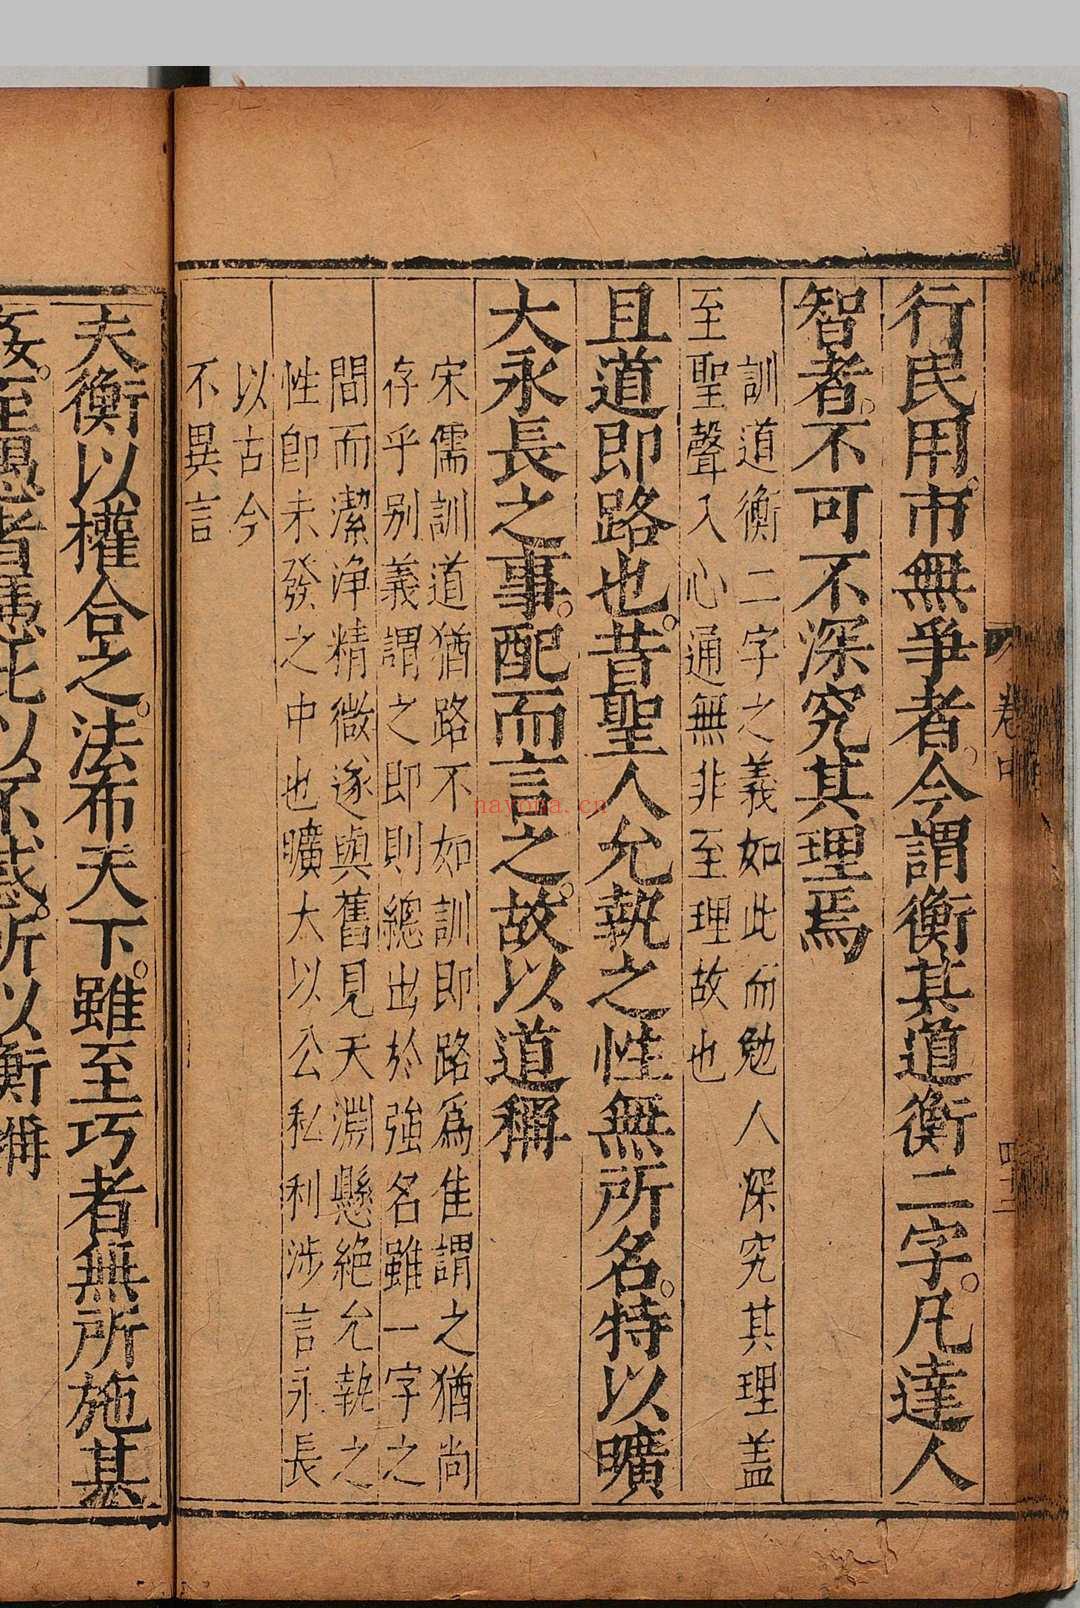 行民用市無爭者今謂衡其道衡二字凡達人
智者不可不深究其理焉
訓道衡二字之義如此而勉人深究其理蓋
至聖聲入心通無非至理故也
且道即路也昔聖人允執之性無所名特以曠
大永長之事配而言之故以道稱
宋儒訓道猶路不如訓即路爲隹謂之猶尚
存乎别義謂之即則總出於強名雖一字之
間而潔淨精微遂與舊見天淵懸絶允執之
性卽未發之中也曠大以公私利涉言永長
以古今
不異言
夫衡以權合之法布天下雖至巧者無所施其
姦至愚者憑此以不惑所以衡稱
卷中
四十二
nayona.cn